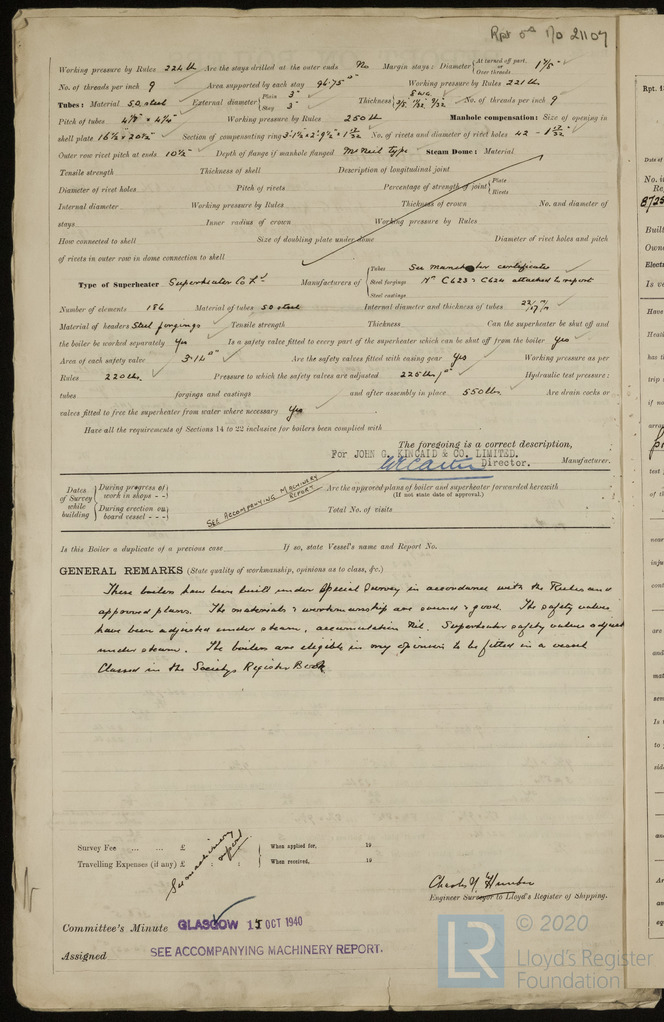 Rpt 5a No 21107
Working pressure by Rules 224 lb Are the stays drilled at the outer ends No Margin stays: Diameter { At turned off part, or Over threads 1 7/8"
No. of threads per inch 9 Area supported by each stay 96.75 □" Working pressure by Rules 221 lb
Tubes: Material S.D. Steel External diameter { Plain 3" Stay 3" Thickness { 8 WG No. of threads per inch 9
Pitch of tubes Working pressure by Rules 250 lb Manhole compensation: Size of opening in
shell plate 16 1/2 × 20 1/2" Section of compensating ring No. of rivets and diameter of rivet holes 42 - 1 13/32"
Outer row rivet pitch at ends 10 1/2" Depth of flange if manhole flanged McNeil Type Steam Dome: Material
Tensile strength Thickness of shell Description of longitudinal joint
Diameter of rivet holes Pitch of rivets Percentage of strength of joint { Plate Rivets
Internal diameter Working pressure by Rules Thickness of crown No. and diameter of
stays Inner radius of crown Working pressure by Rules
How connected to shell Size of doubling plate under dome Diameter of rivet holes and pitch
of rivets in outer row in dome connection to shell
Type of Superheater Superheater Co Ltd Manufacturers of { Tubes Steel forgings Steel castings See Manchester certificates
No C623 & C624 attached to report
Number of elements 186 Material of tubes SD Steel Internal diameter and thickness of tubes
Material of headers Steel forgings Tensile strength Thickness Can the superheater be shut off and
the boiler be worked separately Yes Is a safety valve fitted to every part of the superheater which can be shut off from the boiler Yes
Area of each safety valve 3.14 □" Are the safety valves fitted with easing gear Yes Working pressure as per
Rules 220 lbs. Pressure to which the safety valves are adjusted 225 lbs/□" Hydraulic test pressure:
tubes forgings and castings and after assembly in place 550 lbs. Are drain cocks or
valves fitted to free the superheater from water where necessary Yes
Have all the requirements of Sections 14 to 22 inclusive for boilers been complied with
The foregoing is a correct description,
For JOHN G. KINCAID & CO. LIMITED.
Director. Manufacturer.
Dates of Survey while building { During progress of work in shops - - During erection on board vessel - - -
SEE ACCOMPANYING MACHINERY REPORT
Are the approved plans of boiler and superheater forwarded herewith
(If not state date of approval.)
Total No. of visits
Is this Boiler a duplicate of a previous case If so, state Vessel's name and Report No.
GENERAL REMARKS (State quality of workmanship, opinions as to class, &c.)
These boilers have been built under Special Survey in accordance with the Rules and
approved plans. The materials & workmanship are sound & good. The safety valves
have been adjusted under steam, accumulation Nil. Superheater safety valves adjust
under steam. The boilers are eligible in my opinion to be fitted in a vessel
Classed in the Society's Register Book
Survey Fee ... ... £ : : When applied for, 19
Travelling Expenses (if any) £ : : When received, 19
See machinery report
Charles N. Hunter
Engineer Surveyor to Lloyd's Register of Shipping.
Committee's Minute GLASGOW 15 OCT 1940
Assigned SEE ACCOMPANYING MACHINERY REPORT.
LR © 2020
Lloyd's Register
Foundation